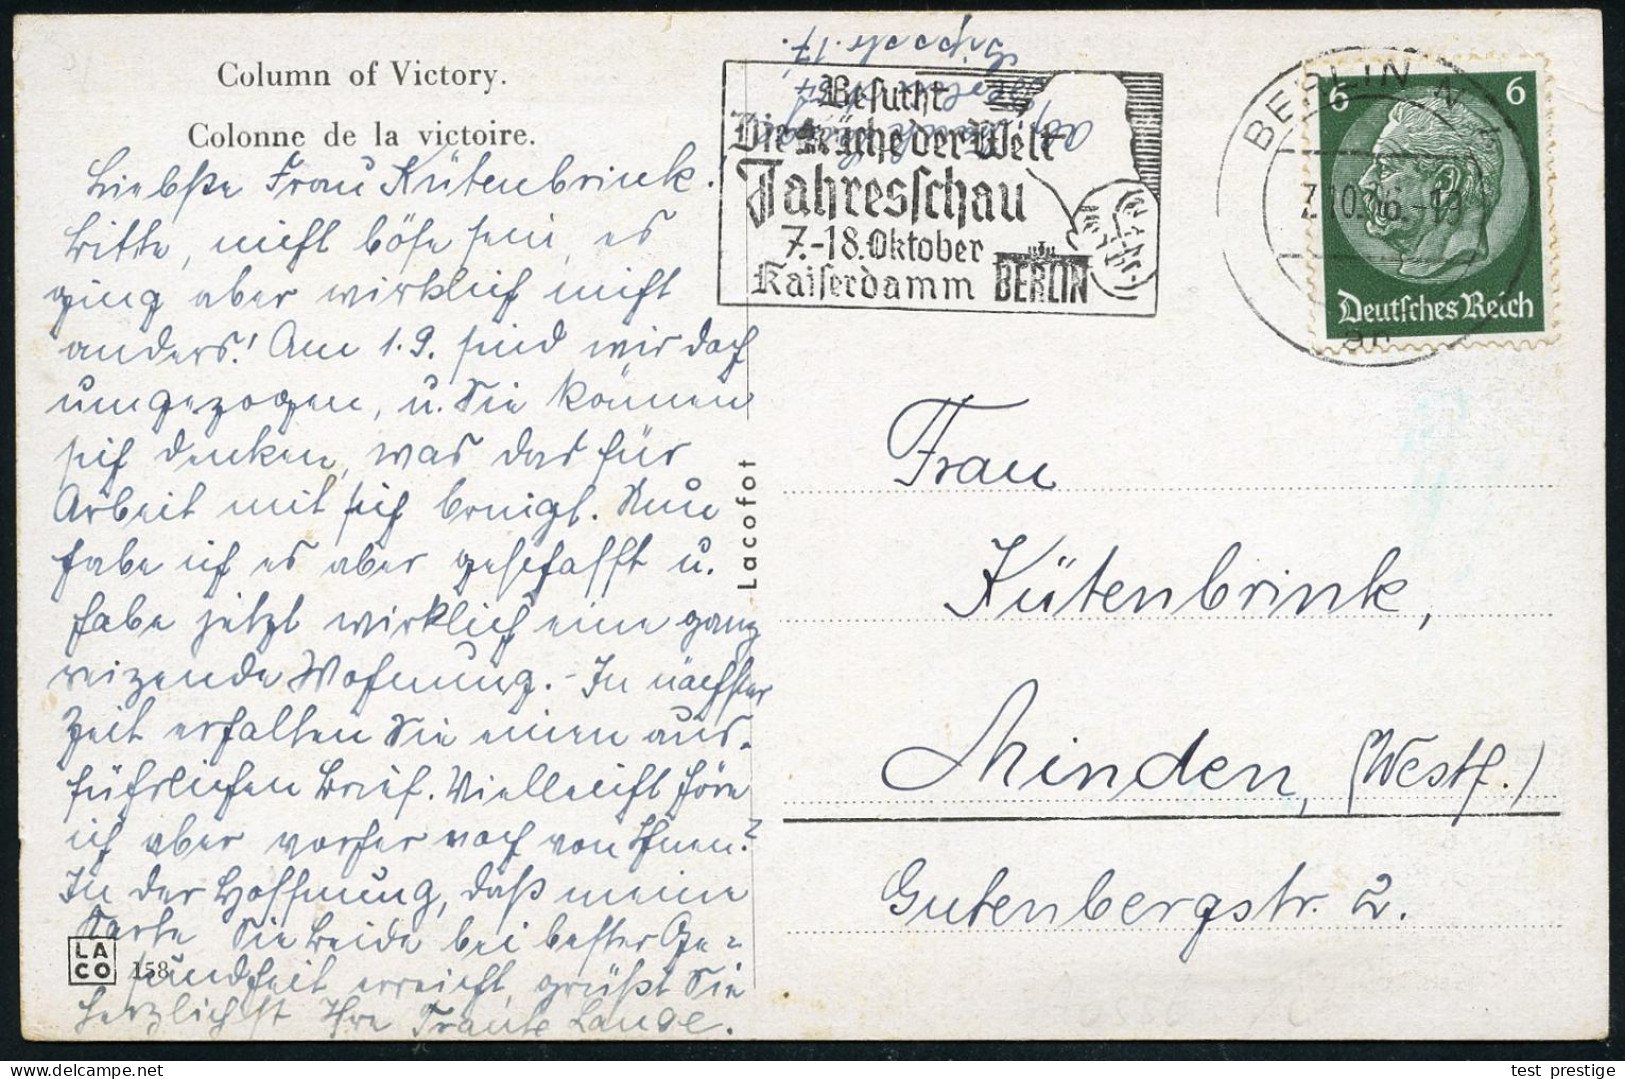 Column of Victory.
Colonne de la victoire.
Liebste Frau Kütenbrink!
Bitte, nicht böse sein, es
ging aber wirklich nicht
anders! Am 1.9. sind wir doch
umgezogen, u. Sie können
sich denken, was das für
Arbeit mit sich bringt. Nun
habe ich es aber geschafft u.
habe jetzt wirklich eine ganz
reizende Wohnung. - In nächster
Zeit erhalten Sie einen aus-
führlichen Brief. Vielleicht höre
ich aber vorher noch von Ihnen?
In der Hoffnung, daß meine
Karte Sie beide bei bester Ge-
sundheit erreicht, grüßt Sie
herzlichst Ihre Traute Lange.
LACO 158
Lacofot
Besucht
Die Küche der Welt
Jahresschau
7.-18. Oktober
Kaiserdamm BERLIN
BERLIN N 4
7.10.36.-19
an
6 6
Deutsches Reich
Frau
Kütenbrink,
Minden, (Westf.)
Gutenbergstr. 2.
test prestige